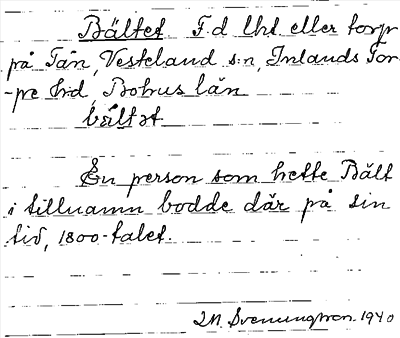 Bältet F.d lht. eller torp
på Tån, Vesteland s:n, Inlands Tor-
-pe h:d, Bohus län
bältet
En person som hette Bält
i tillnamn bodde där på sin
tid, 1800-talet.
Svenungsson. 1940